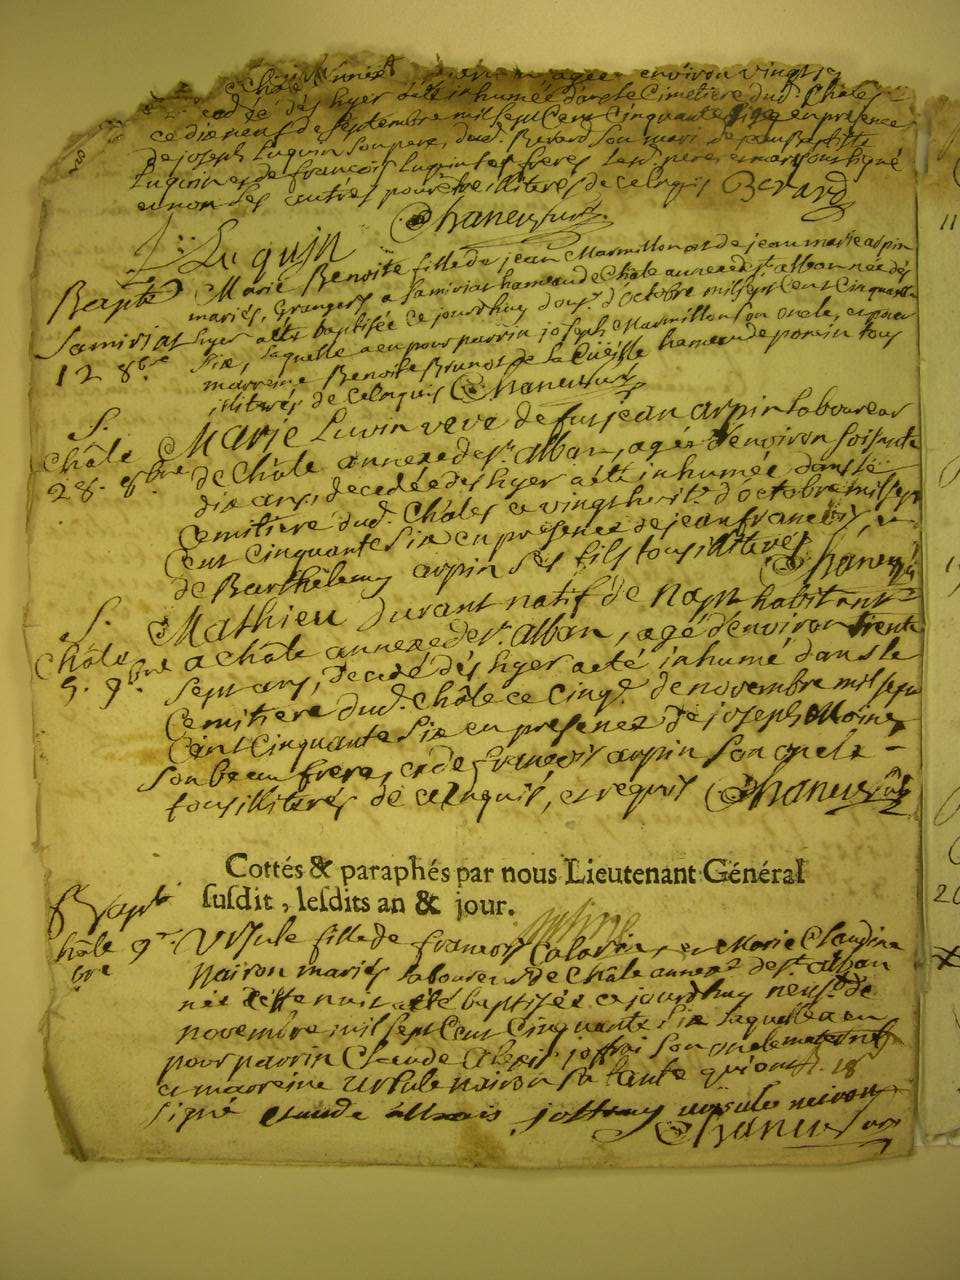 environ vingt
decedée dès hyer a été inhumée dans le Cimetiere dud. Châles
ce dix neuf de septembre mil sept cent cinquante six en presence
de joseph Luquin son pere, dud. Berard son mari de jean Baptiste
Luquin et de francois Luquin ses freres lesd. pere et mari soussigné
et non les autres pour être illiterés de ce enquis Berard
Chaneu curé
Luquin
Bapt. Marie Benoite fille de jean Marmillon et de jeanne marie arpin
mariés, Grangers a Samiriat hameau de Châle annexe de st. alban née dès
Samiriat hyer a été baptisée ce jourdhuy douze d'octobre mil sept cent cinquante
12 8bre six, laquelle a eu pour parrin joseph Marmillon son oncle, et pour
marreine Benoite Brunot de la hameau de poncin tous
illiterés de ce enquis Chaneu curé
S. Marie Luvin veve de feu jean arpin laboureur
Châle de Châle annexe de st. alban, agée d'environ soisante
28. 8bre dix ans, decedée dès hyer a été inhumée dans le
Cemitiere dud. Châles ce vingt huit d'octobre mil sept
Cent cinquante six en presence de jean francois, et
de Barthelemy arpin ses fils tous illiterés Chaneu
S. Mathieu Durant natif de habitant
Châle a Châle annexe de st. alban, agé d'environ trente
5. 9bre sept ans, decedé dès hyer a été inhumé dans le
Cemitiere dud. Châle ce cinq. de novembre mil sept
Cent Cinquante six en presence de joseph Moine
son beau frere, et de francois arpin son oncle
tous illiterés de ce enquis, et requis Chaneu curé
Cottés & paraphés par nous Lieutenant Général
susdit, lesdits an & jour.
Bapt.
Châle 9. Ursule fille de francois et Marie Claudine
bre Nairon mariés laboureurs de Châle annexe de st. alban
née cette nuit a été baptisée ce jourdhuy neuf. de
novembre mil sept cent Cinquante six laquelle a eu
pour parrin Claude Alexis joffrai son oncle maternel
et marreine Ursule nairon sa tante qui ont
signé Claude allexis joffray ursule neiron
Chaneu curé